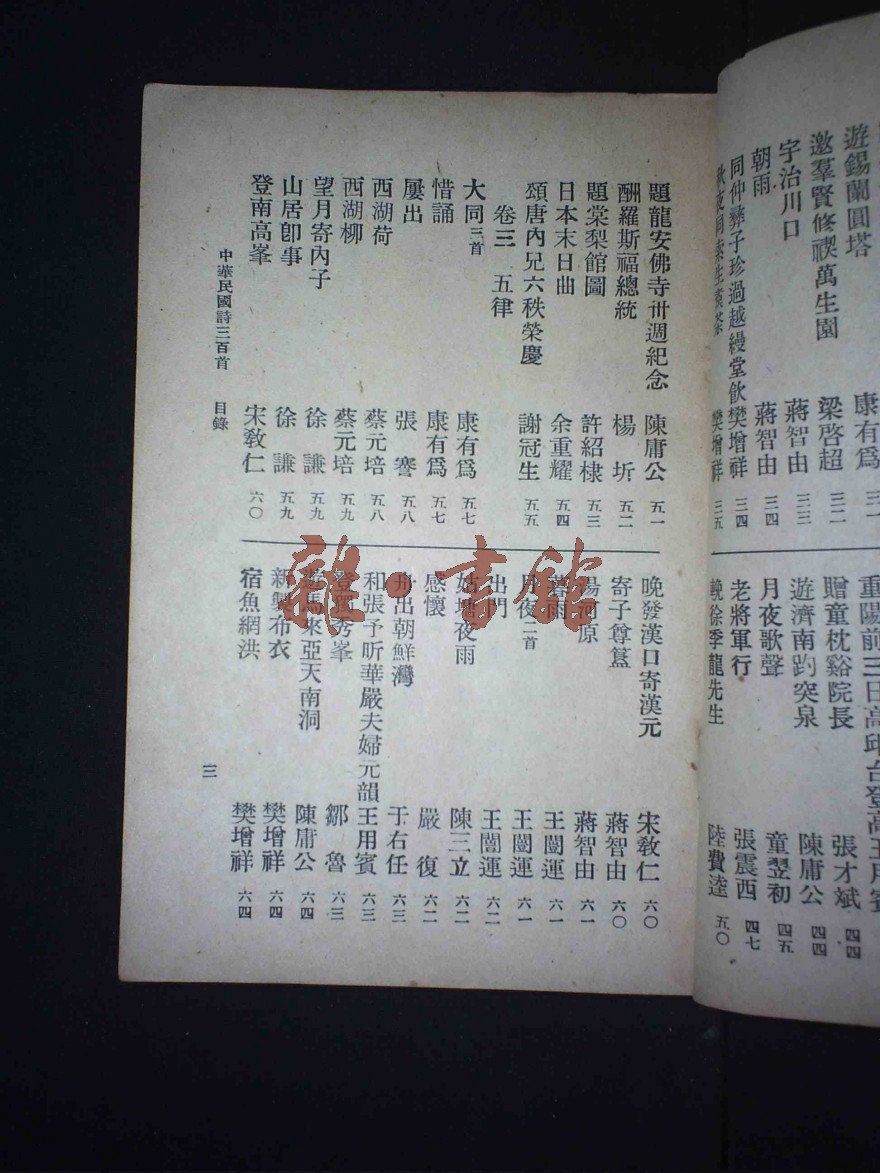 遊錫蘭圓塔 康有爲 三一
邀羣賢修禊萬生園 梁啓超 三二
宇治川口 蔣智由 三三
朝雨 蔣智由 三四
同仲彝子珍過越縵堂飲 樊增祥 三四
樊增祥 三五
重陽前三日高邱台登高 王用賓
贈童枕谿院長 張才斌 四四
遊濟南趵突泉 陳庸公 四四
月夜歌聲 童翌初 四五
老將軍行 張震西 四七
輓徐季龍先生 陸費逵 五〇
題龍安佛寺卅週紀念 陳庸公 五一
酬羅斯福總統 楊圻 五二
題棠梨館圖 許紹棣 五三
日本末日曲 余重耀 五四
頌唐內兄六秩榮慶 謝冠生 五五
卷三 五律
大同三首 康有爲 五七
惜誦 康有爲 五七
屢出 張謇 五八
西湖荷 蔡元培 五八
西湖柳 蔡元培 五九
望月寄內子 徐謙 五九
山居卽事 徐謙 五九
登南高峯 宋敎仁 六〇
晚發漢口寄漢元 宋敎仁 六〇
寄子尊簋 蔣智由 六〇
湯河原 蔣智由 六一
暮雨 王闓運 六一
月夜二首 王闓運 六一
出門 王闓運 六二
姑塘夜雨 陳三立 六二
感懷 嚴復 六二
舟出朝鮮灣 于右任 六三
和張予昕華嚴夫婦元韻 王用賓 六三
登獨秀峯 鄒魯 六三
遊馬來亞天南洞 陳庸公 六四
新製布衣 樊增祥 六四
宿魚網洪 樊增祥 六四
中華民國詩三百首 目錄 三
雜·書館